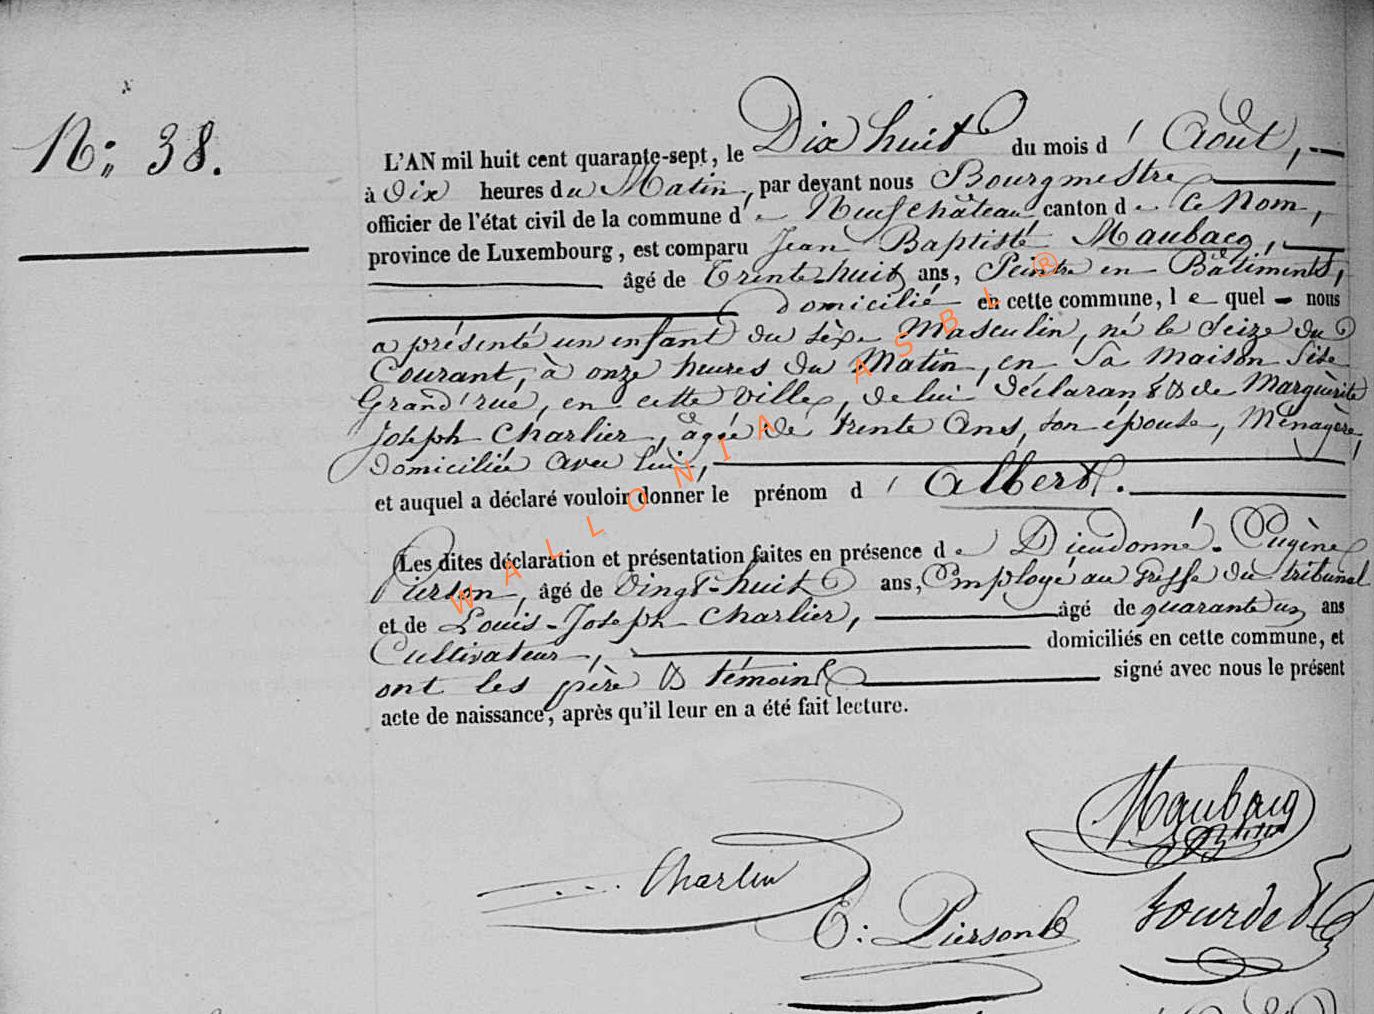 N° 38.
L'AN mil huit cent quarante-sept, le Dix huit du mois d'Août,
à Dix heures du Matin, par devant nous Bourgmestre
officier de l'état civil de la commune de Neufchâteau canton de Ce Nom,
province de Luxembourg, est comparu Jean Baptiste Maubacq,
âgé de Trente-huit ans, Peintre en Bâtiments,
Domicilié en cette commune, lequel nous
a présenté un enfant du sèxe Masculin, né le Seize du
Courant, à onze heures du Matin, en Sa Maison Sise
Grand'rue, en cette Ville, de lui déclarant & de Marguèrite
Joseph Charlier, âgée de trente Ans, son épouse, Ménagère,
domiciliée avec lui,
et auquel a déclaré vouloir donner le prénom d'Albert.
Les dites déclaration et présentation faites en présence de Dieudonné-Eugène
Pierson, âgé de Vingt-huit ans, Employé au Greffe du tribunal
et de Louis-Joseph Charlier, âgé de quarante un ans
Cultivateur, domiciliés en cette commune, et
ont les père & témoins signé avec nous le présent
acte de naissance, après qu'il leur en a été fait lecture.
Maubacq
Charlier
E: Pierson
WALLONIA ASBL ®